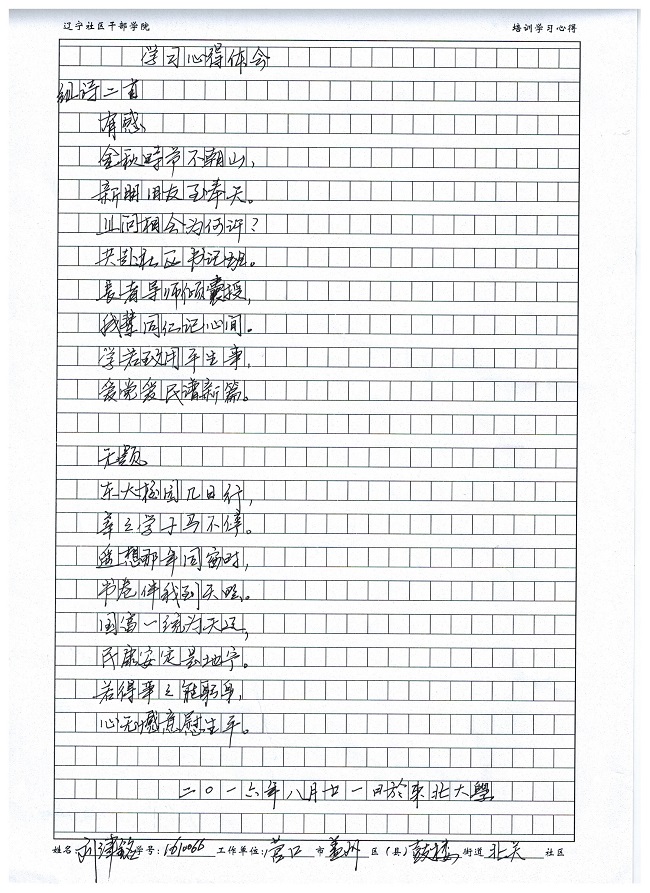 辽宁社区干部学院 培训学习心得
学习心得体会
组诗二首
有感
金秋时节不朝山,
新朋旧友至奉天。
业问相会为何许?
共赴社区书记班。
长者导师倾囊授,
我辈同仁记心间。
学若致用平生事,
爱党爱民谱新篇。
无题
东大校园几日行,
莘莘学子马不停。
遥想那年同窗时,
书卷伴我到天明。
国富一统为天辽,
民康安定是地宁。
若得莘莘能职事,
心无愧意慰生平。
二〇一六年八月廿一日于东北大學
姓名 学号: 1610066 工作单位: 营口 市 盖州 区(县) 鼓楼 街道 北关 社区